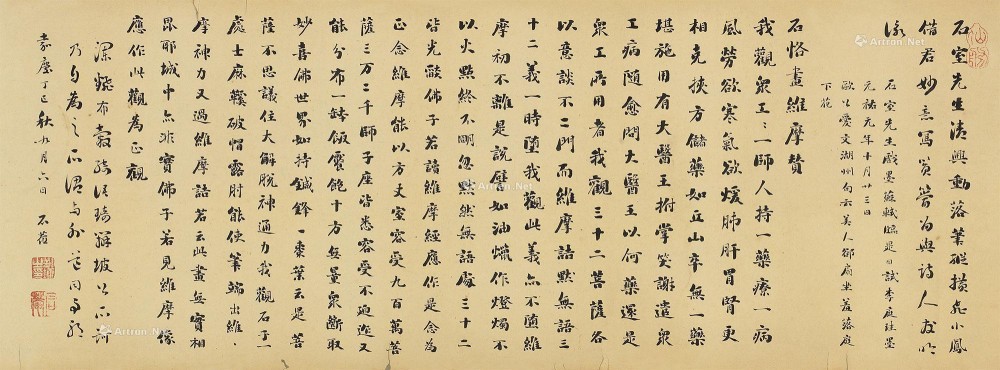 石室先生清興動落筆縱横飛小鳳
借君妙意寫篔簹為與詩人發吟
詠
石室先生戲墨蘇軾臨題日試李庭珪墨
元祐元年十月廿三日
歐公愛文湖州句云美人却扇坐羞落庭
下花
石恪畫維摩贊
我觀衆工工一師人持一藥療一病
風勞欲寒氣欲煖肺肝胃腎更
相克挾方儲藥如丘山卒無一藥
堪施用有大醫王拊掌笑謝遣衆
工病隨愈問大醫王以何藥還是
衆工所用者我觀三十二菩薩各
以意談不二門而維摩詰默無語三
十二義一時墮我觀此義亦不墮維
摩初不離是說譬如油蠟作燈燭不
以火點終不明忽點默然無語處三十二
皆光燄佛子若讀維摩經應作是念為
正念維摩能以方丈室容受九百萬菩
薩三万二千師子座皆悉容受不迫迮又
能分布一鉢飯饜飽十方無量衆斷取
妙喜佛世界如持鍼鋒一棗葉云是菩
薩不思議住大解脫神通力我觀石子一
處士麻鞵破帽露肘能使筆端出維
摩神力又過維摩詰若云此畫無實相
毘耶城中亦非實佛子若見維摩像
應作此觀為正觀
深疑布縠 坡公所
乃自為之
丁巳秋九月六日 石
Artron.Net
Artron.Net
Artron.Net
Artron.Net